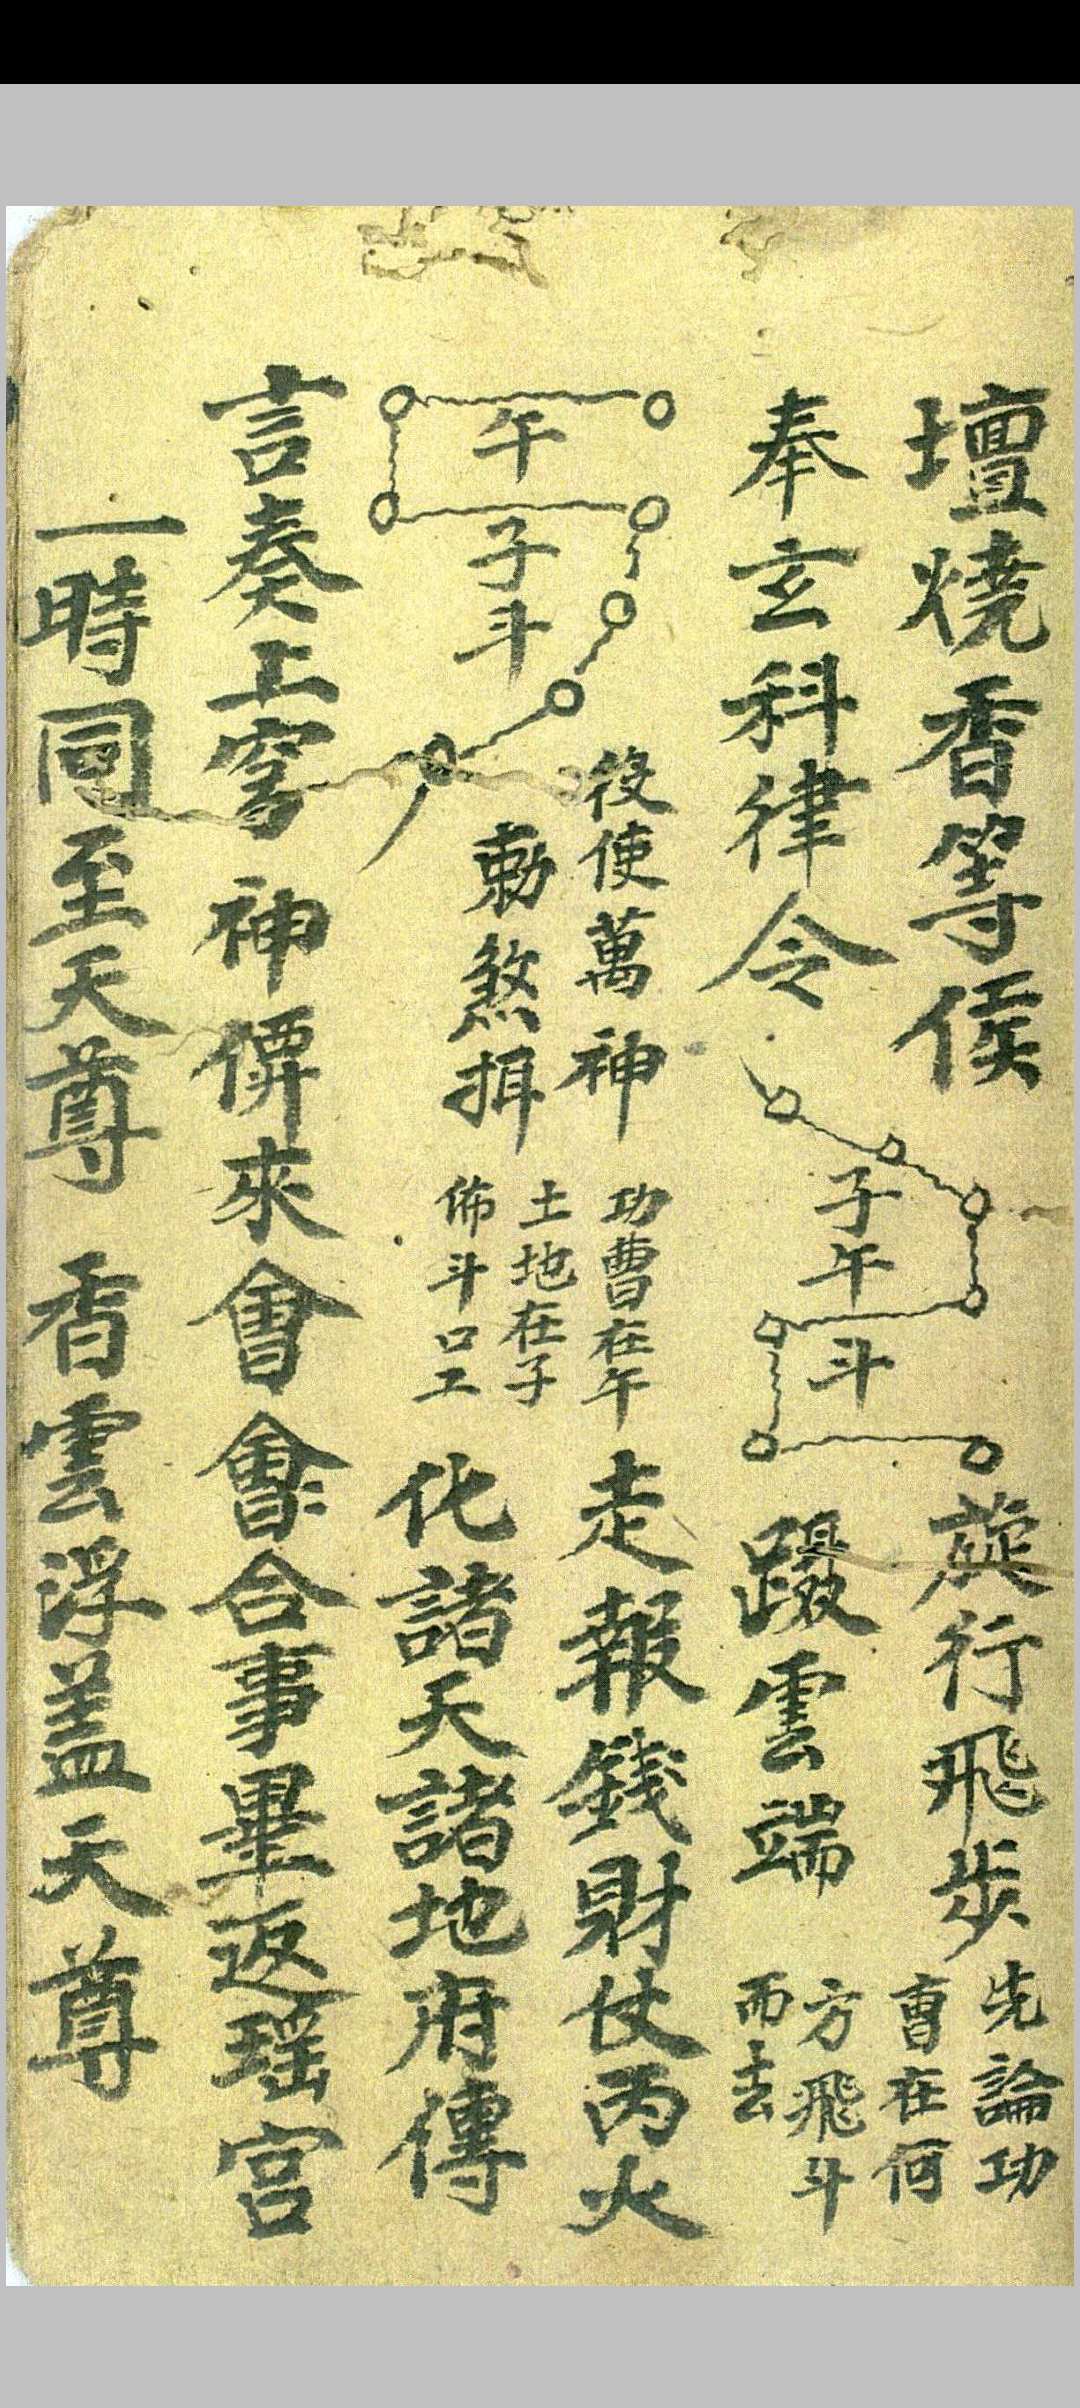 壇燒香等侯
旋行飛步
先論功
曹在何
方飛斗
而去
奉玄科律令
子午
斗
躡雲端
午
子斗
役使萬神
勅煞揖
功曹在午
土地在子
佈斗口工
走報錢財仗丙火
化諸天諸地府傳
言奏上穹神儛來會會合事畢返瑤宫
一時同至天尊 香雲浮盖天尊